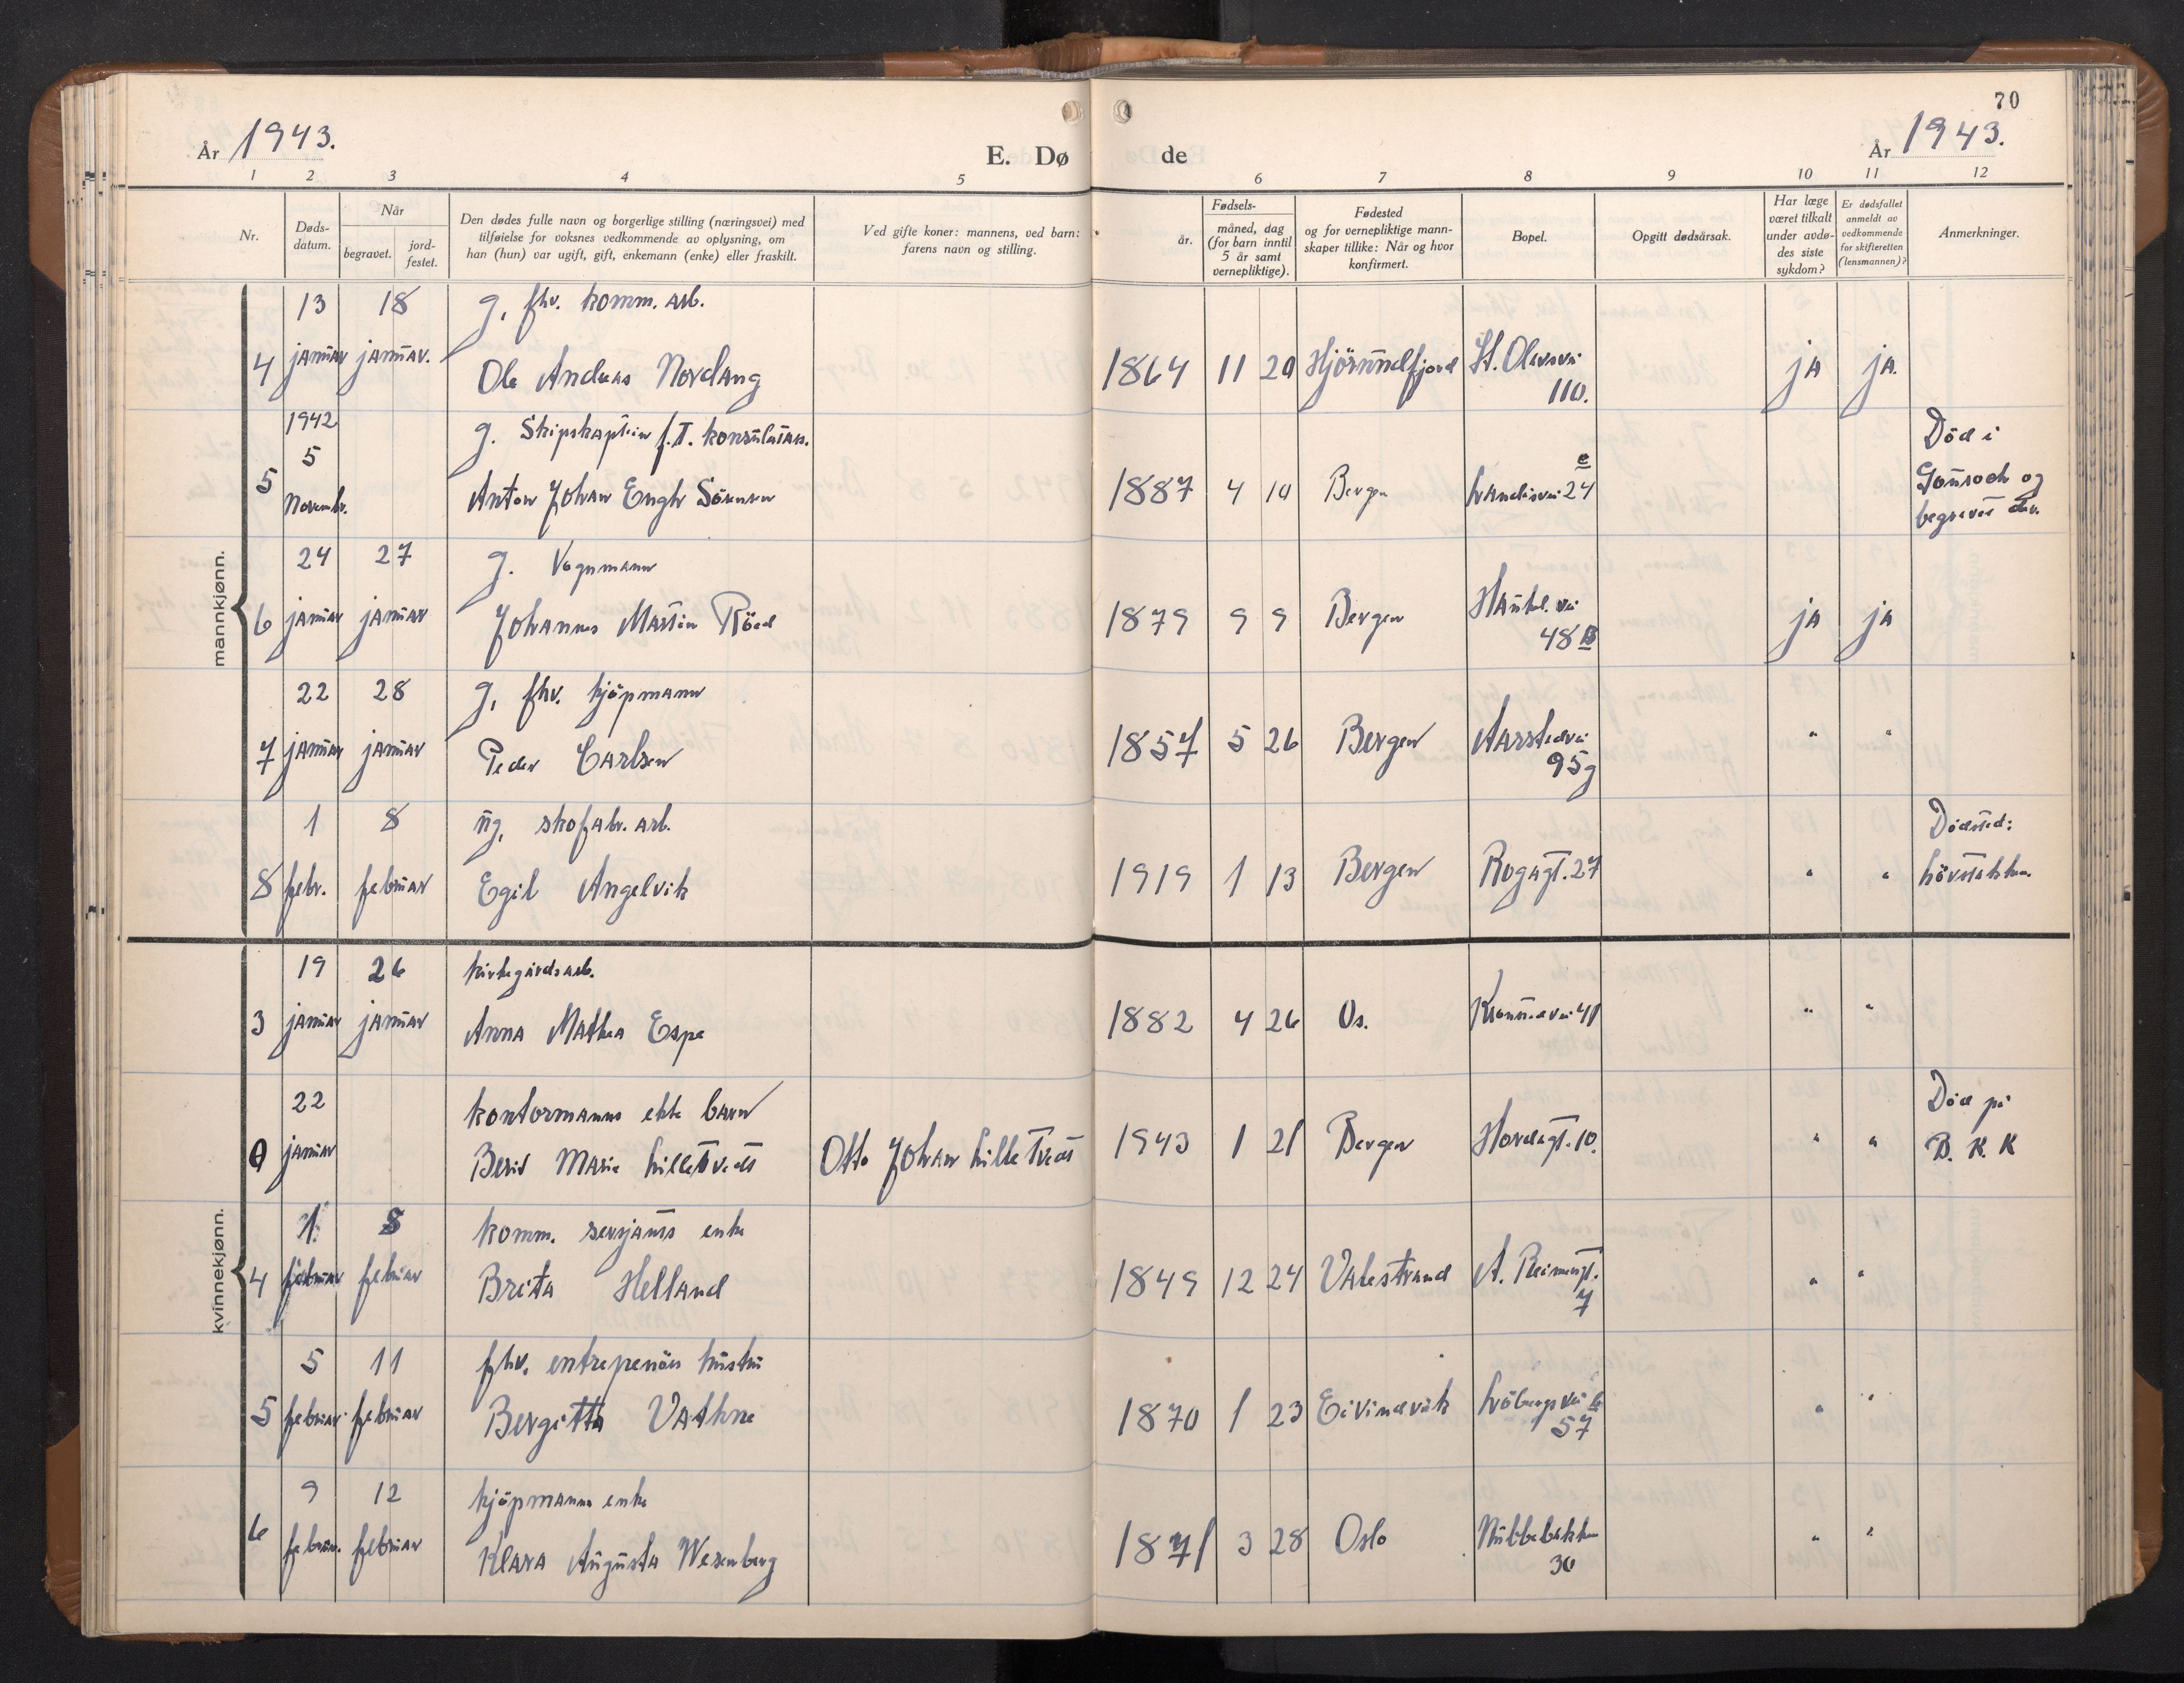 70
År 1943.
E. Dø de
År 1943.
1 2 3 4 5 6 7 8 9 10 11 12
Nr.
Døds-
datum.
Når
begravet.
jord-
festet.
Den dødes fulle navn og borgerlige stilling (næringsvei) med
tilføielse for voksnes vedkommende av oplysning, om
han (hun) var ugift, gift, enkemann (enke) eller fraskilt.
Ved gifte koner: mannens, ved barn:
farens navn og stilling.
Fødsels-
år.
måned, dag
(for barn inntil
5 år samt
vernepliktige).
Fødested
og for vernepliktige mann-
skaper tillike: Når og hvor
konfirmert.
Bopel.
Opgitt dødsårsak.
Har læge
været tilkalt
under avdø-
des siste
sykdom?
Er dødsfallet
anmeldt av
vedkommende
for skifteretten
(lensmannen)?
Anmerkninger.
mannkjønn.
13 18 g, fhv. komm. arb.
4 januar januar. Ole Andreas Nordang 1864 11 20 Hjörundfjord St. Olavsvei ja ja.
110.
1942 g. Skipskaptein f.T. Død i
5
5 Novembr. Anton Johan Engh Sörensen 1887 4 10 Bergen 24 og
begravet der.
24 27 g. Vognmann
6 januar januar Johannes Martin Röed 1879 9 9 Bergen Haukel. vei ja ja
48 B
22 28 g, fhv. kjöpmann
7 januar januar Peder Carlsen 1857 5 26 Bergen Aarstadvei " "
95g
1 8 ug, skofabr. arb. Dødssted:
8 febr. februar Egil Angelvik 1919 1 13 Bergen Rogagt. 27 " " Lövstakken
kvinnekjønn.
19 26 kirkegårdsarb.
3 januar januar Anna Mathea Espe 1882 4 26 Os. 41 " "
22 kontormanns ekte barn Død på
0 januar Berit Marie Lilletvedt Otto Johan Lilletvedt 1943 1 21 Bergen Hordagt. 10. " " B. K. K
1. 8 komm. sersjants enke
4 februar februar Brita Helland 1849 12 24 Valestrand A. Reimersgt. " "
7
5 11 fhv. entrepenörs hustru
5 februar februar Bergitta Vathne 1870 1 23 Eivindvik Löbergsvei " "
57
9 12 kjöpmanns enke
6 februar. februar Klara Augusta Wesenberg 1871 3 28 Oslo Nubbebakken " "
30